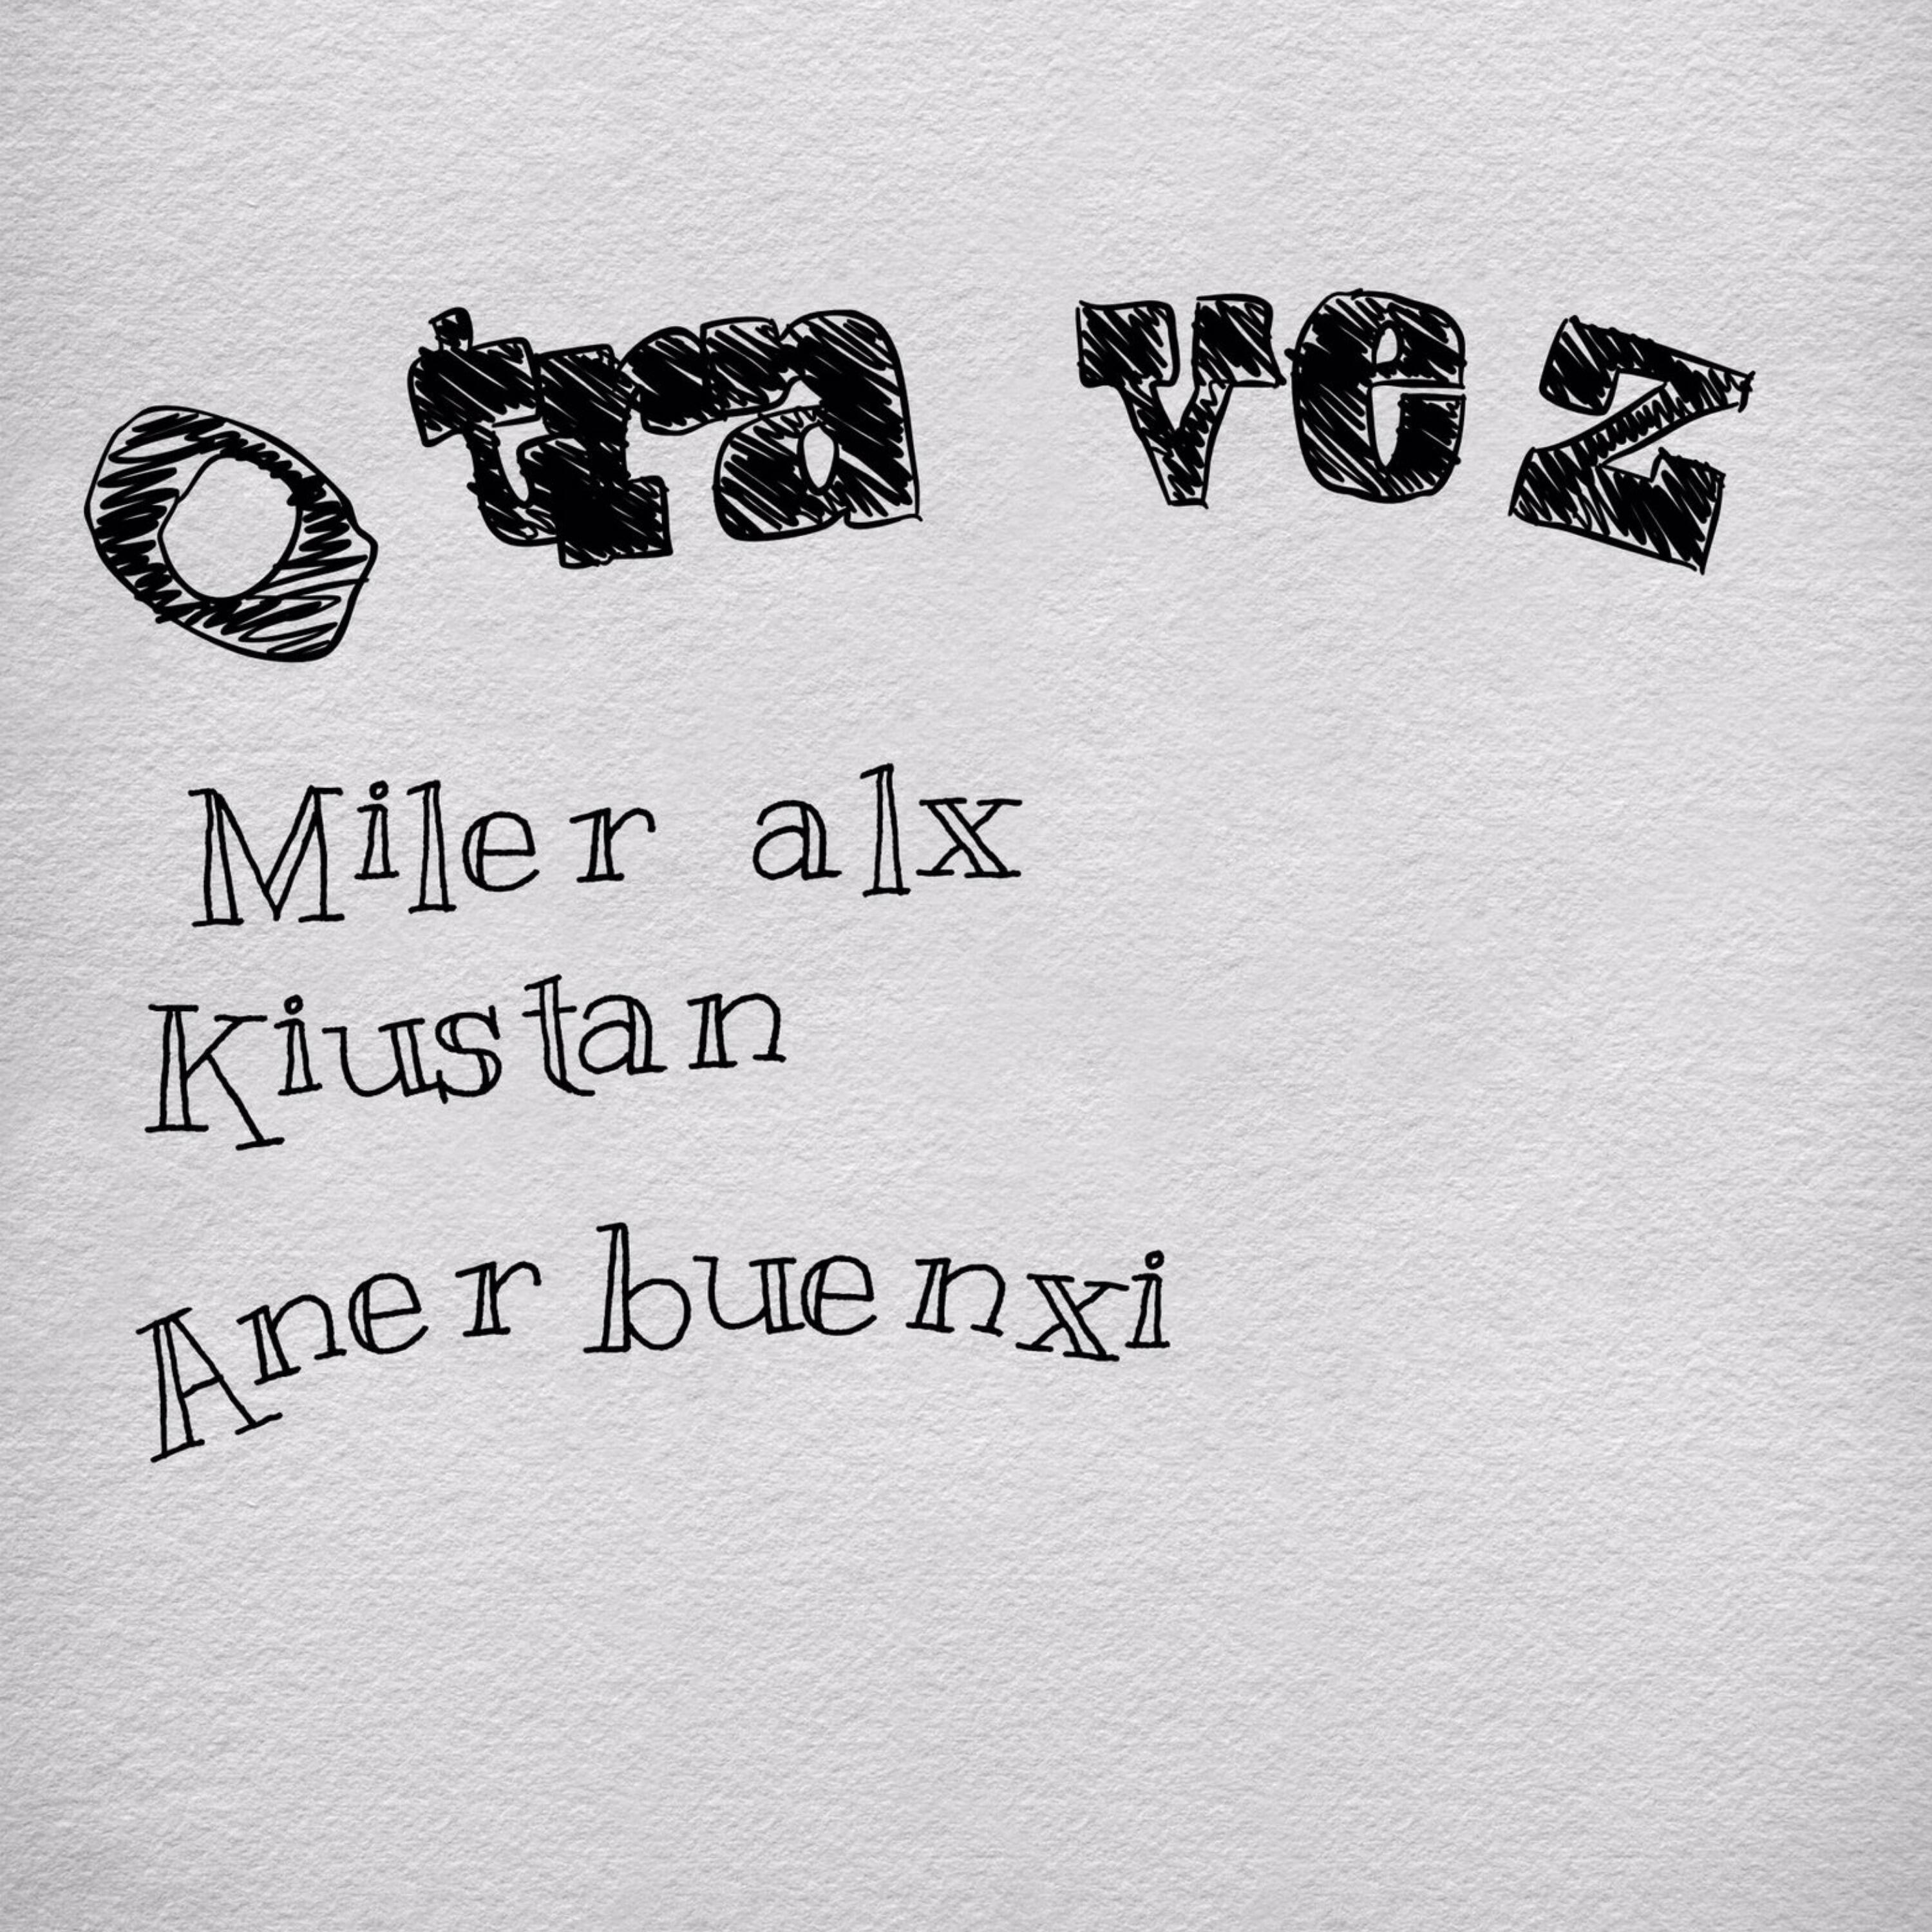 Otra vez
Miler alx
Kiustan
Aner buenxi